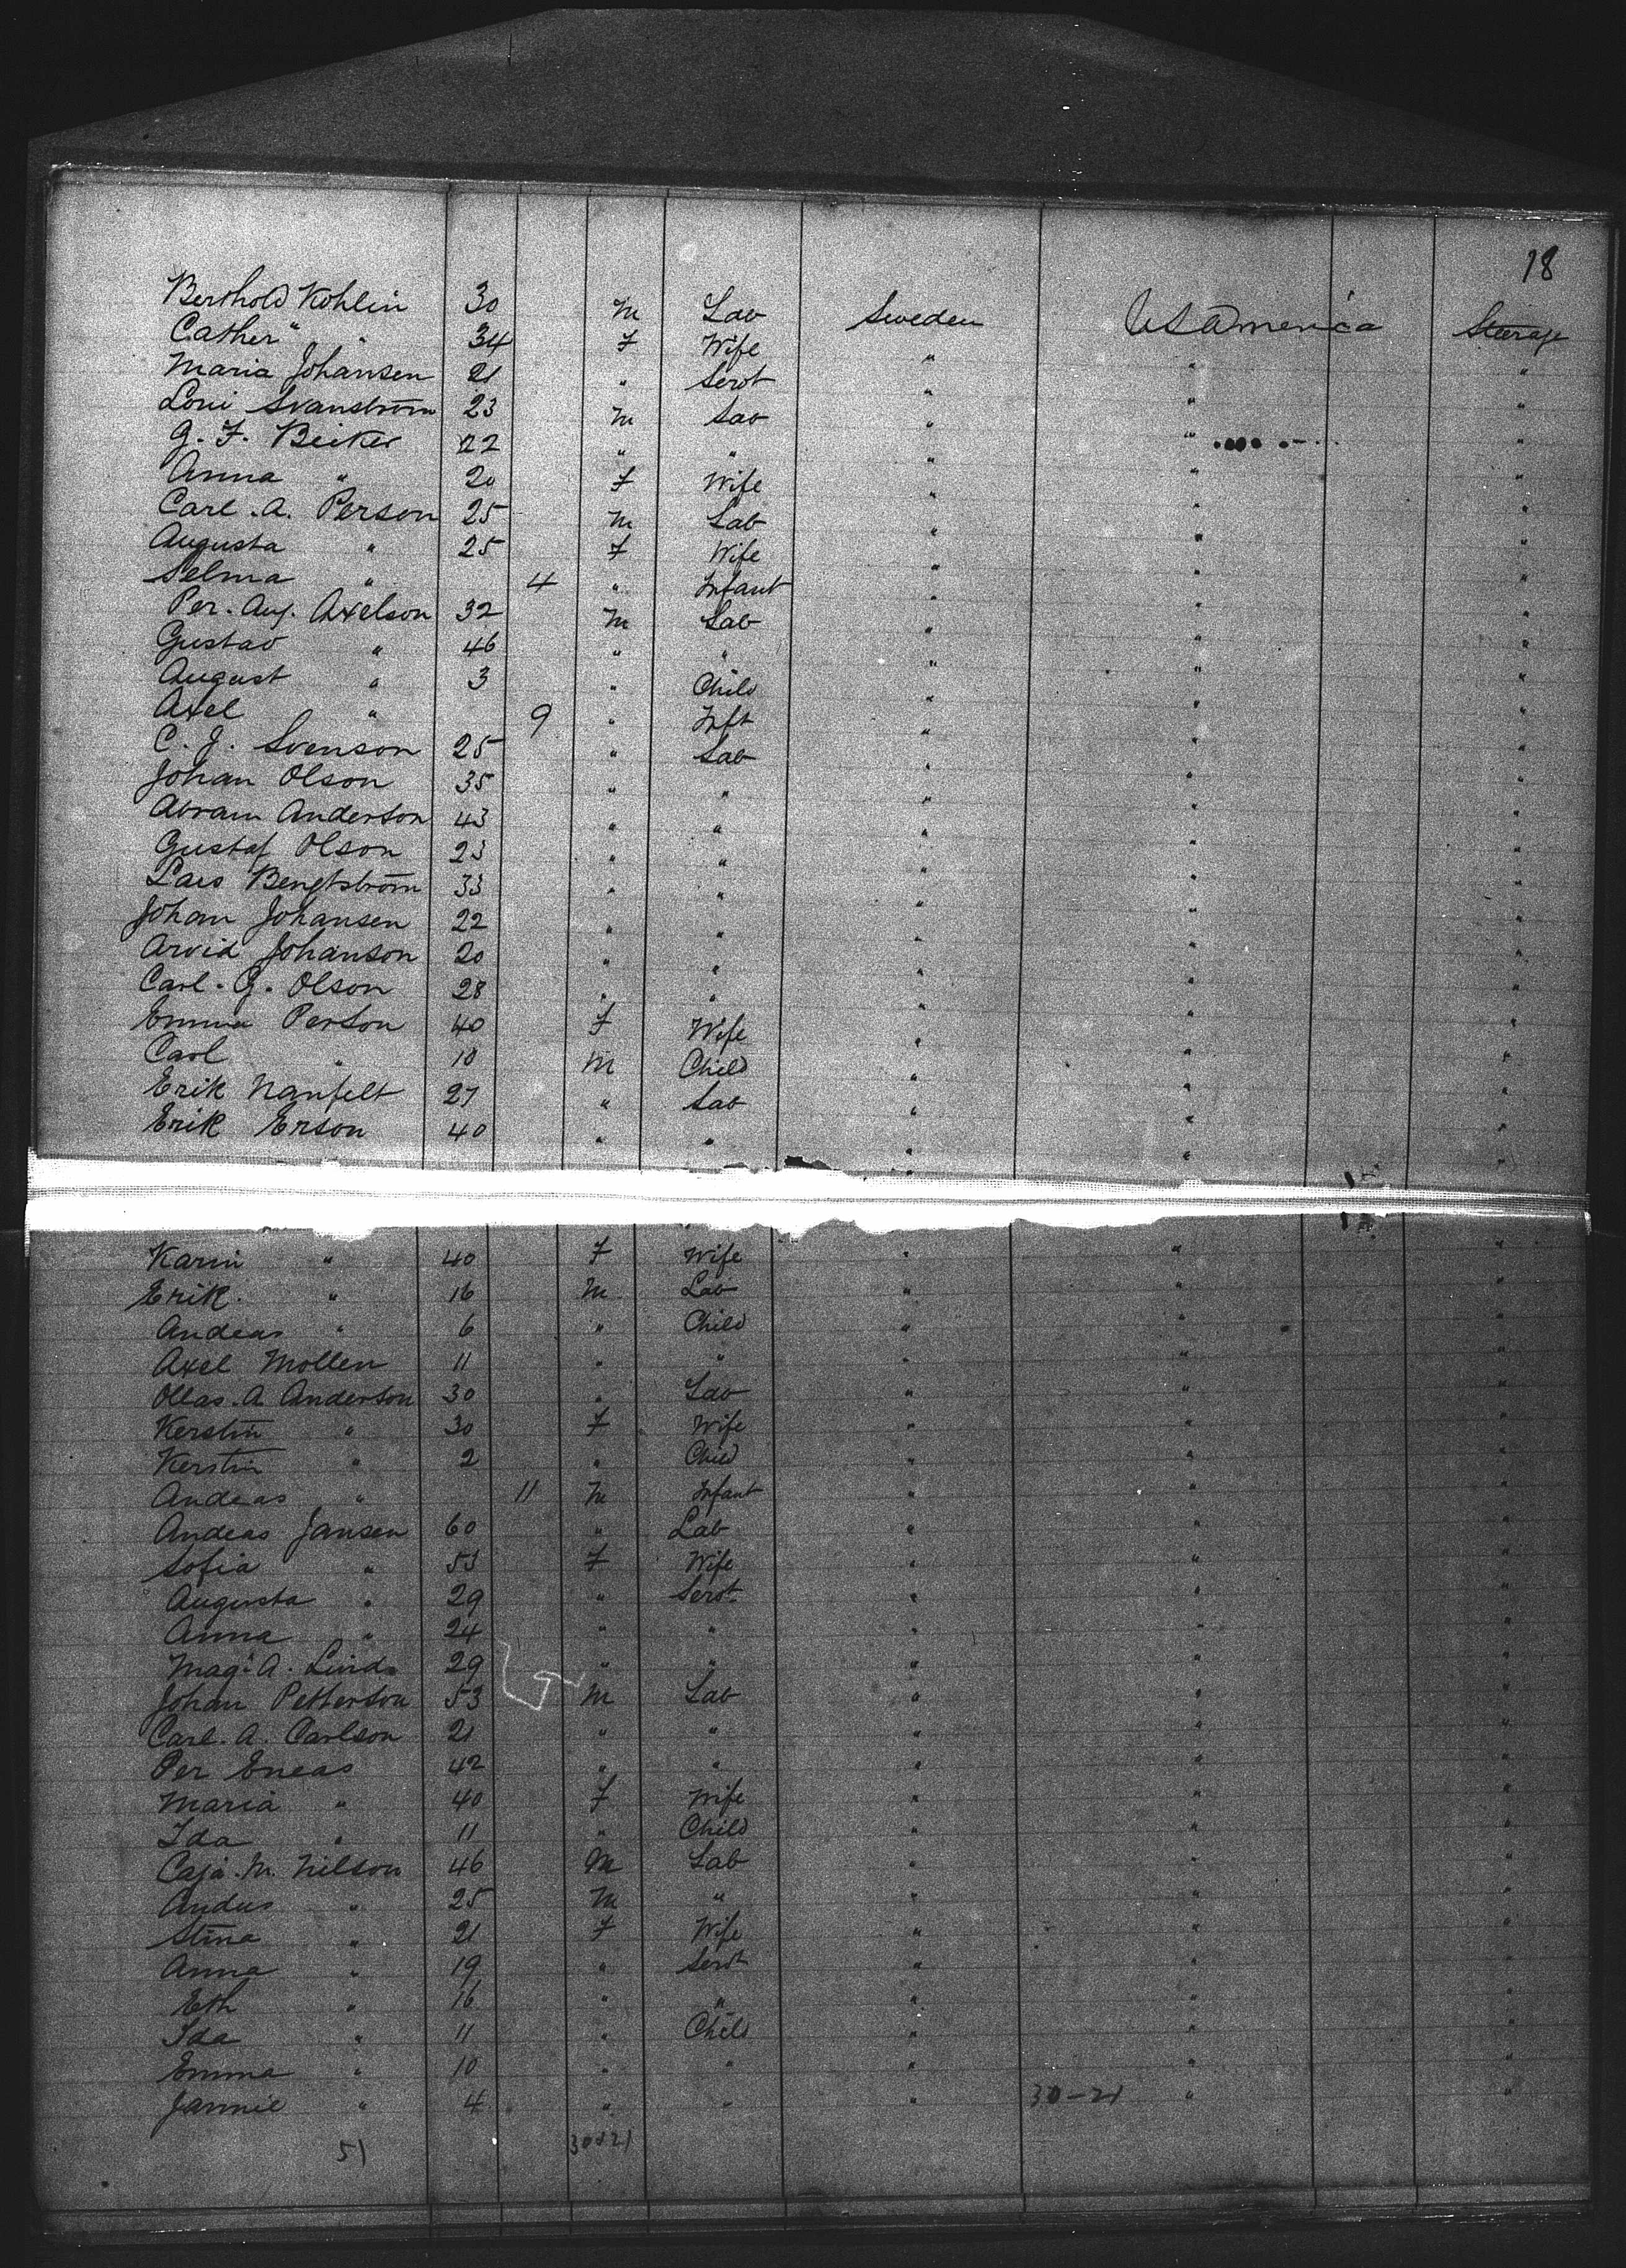 18
Berthold Kohlin 30 M Lab Sweden USAmerica Steerage
Cather " " 34 F Wife " " "
Maria Johansen 21 " Servt " " "
Svanström 23 M Lab " " "
G. F. Beiker 22 " " " " "
Anna " 20 F Wife " " "
Carl. A. Person 25 M Lab " " "
Augusta " 25 F Wife " " "
Selma " 4 " Infant " " "
Per. Aug. Axelson 32 M Lab " " "
Gustav " 46 " " " " "
August " 3 " Child " " "
Axel " 9 " Inft " " "
C. J. Svenson 25 " Lab " " "
Johan Olson 35 " " " " "
Abram Anderson 43 " " " " "
Gustaf Olson 23 " " " " "
Lars Bengtström 33 " " " " "
Johan Johansen 22 " " " " "
Arvid Johanson 20 " " " " "
Carl. G. Olson 28 " " " " "
Emma Person 40 F Wife " " "
Carl " 10 M Child " " "
Erik Nanfelt 27 " Lab " " "
Erik Erson 40 " " " " "
Karin " 40 F Wife " " "
Erik. " 16 M Lab " " "
Andeas " 6 " Child " " "
Axel Mollen 11 " " " " "
Ollas. A Anderson 30 " Lab " " "
Kerstin " 30 F Wife " " "
Kerstin " 2 " Child " " "
Andeas " 11 M Infant " " "
Andeas Jansen 60 " Lab " " "
Sofia " 53 F Wife " " "
Augusta " 29 " Servt " " "
Anna " 24 " " " " "
Mag. A. Lind 29 " " " " "
Johan Petterson 53 M Lab " " "
Carl. A. Carlson 21 " " " " "
Per Eneas 42 " " " " "
Maria " 40 F Wife " " "
Ida " 11 " Child " " "
Caja. M. Nilson 46 M Lab " " "
Andus " 25 M " " " "
Stina " 21 F Wife " " "
Anna " 19 " Servt " " "
Eth " 16 " " " " "
Ida " 11 " Child " " "
Emma " 10 " " " " "
Jannie " 4 " " " 30-21 " "
51 30+21